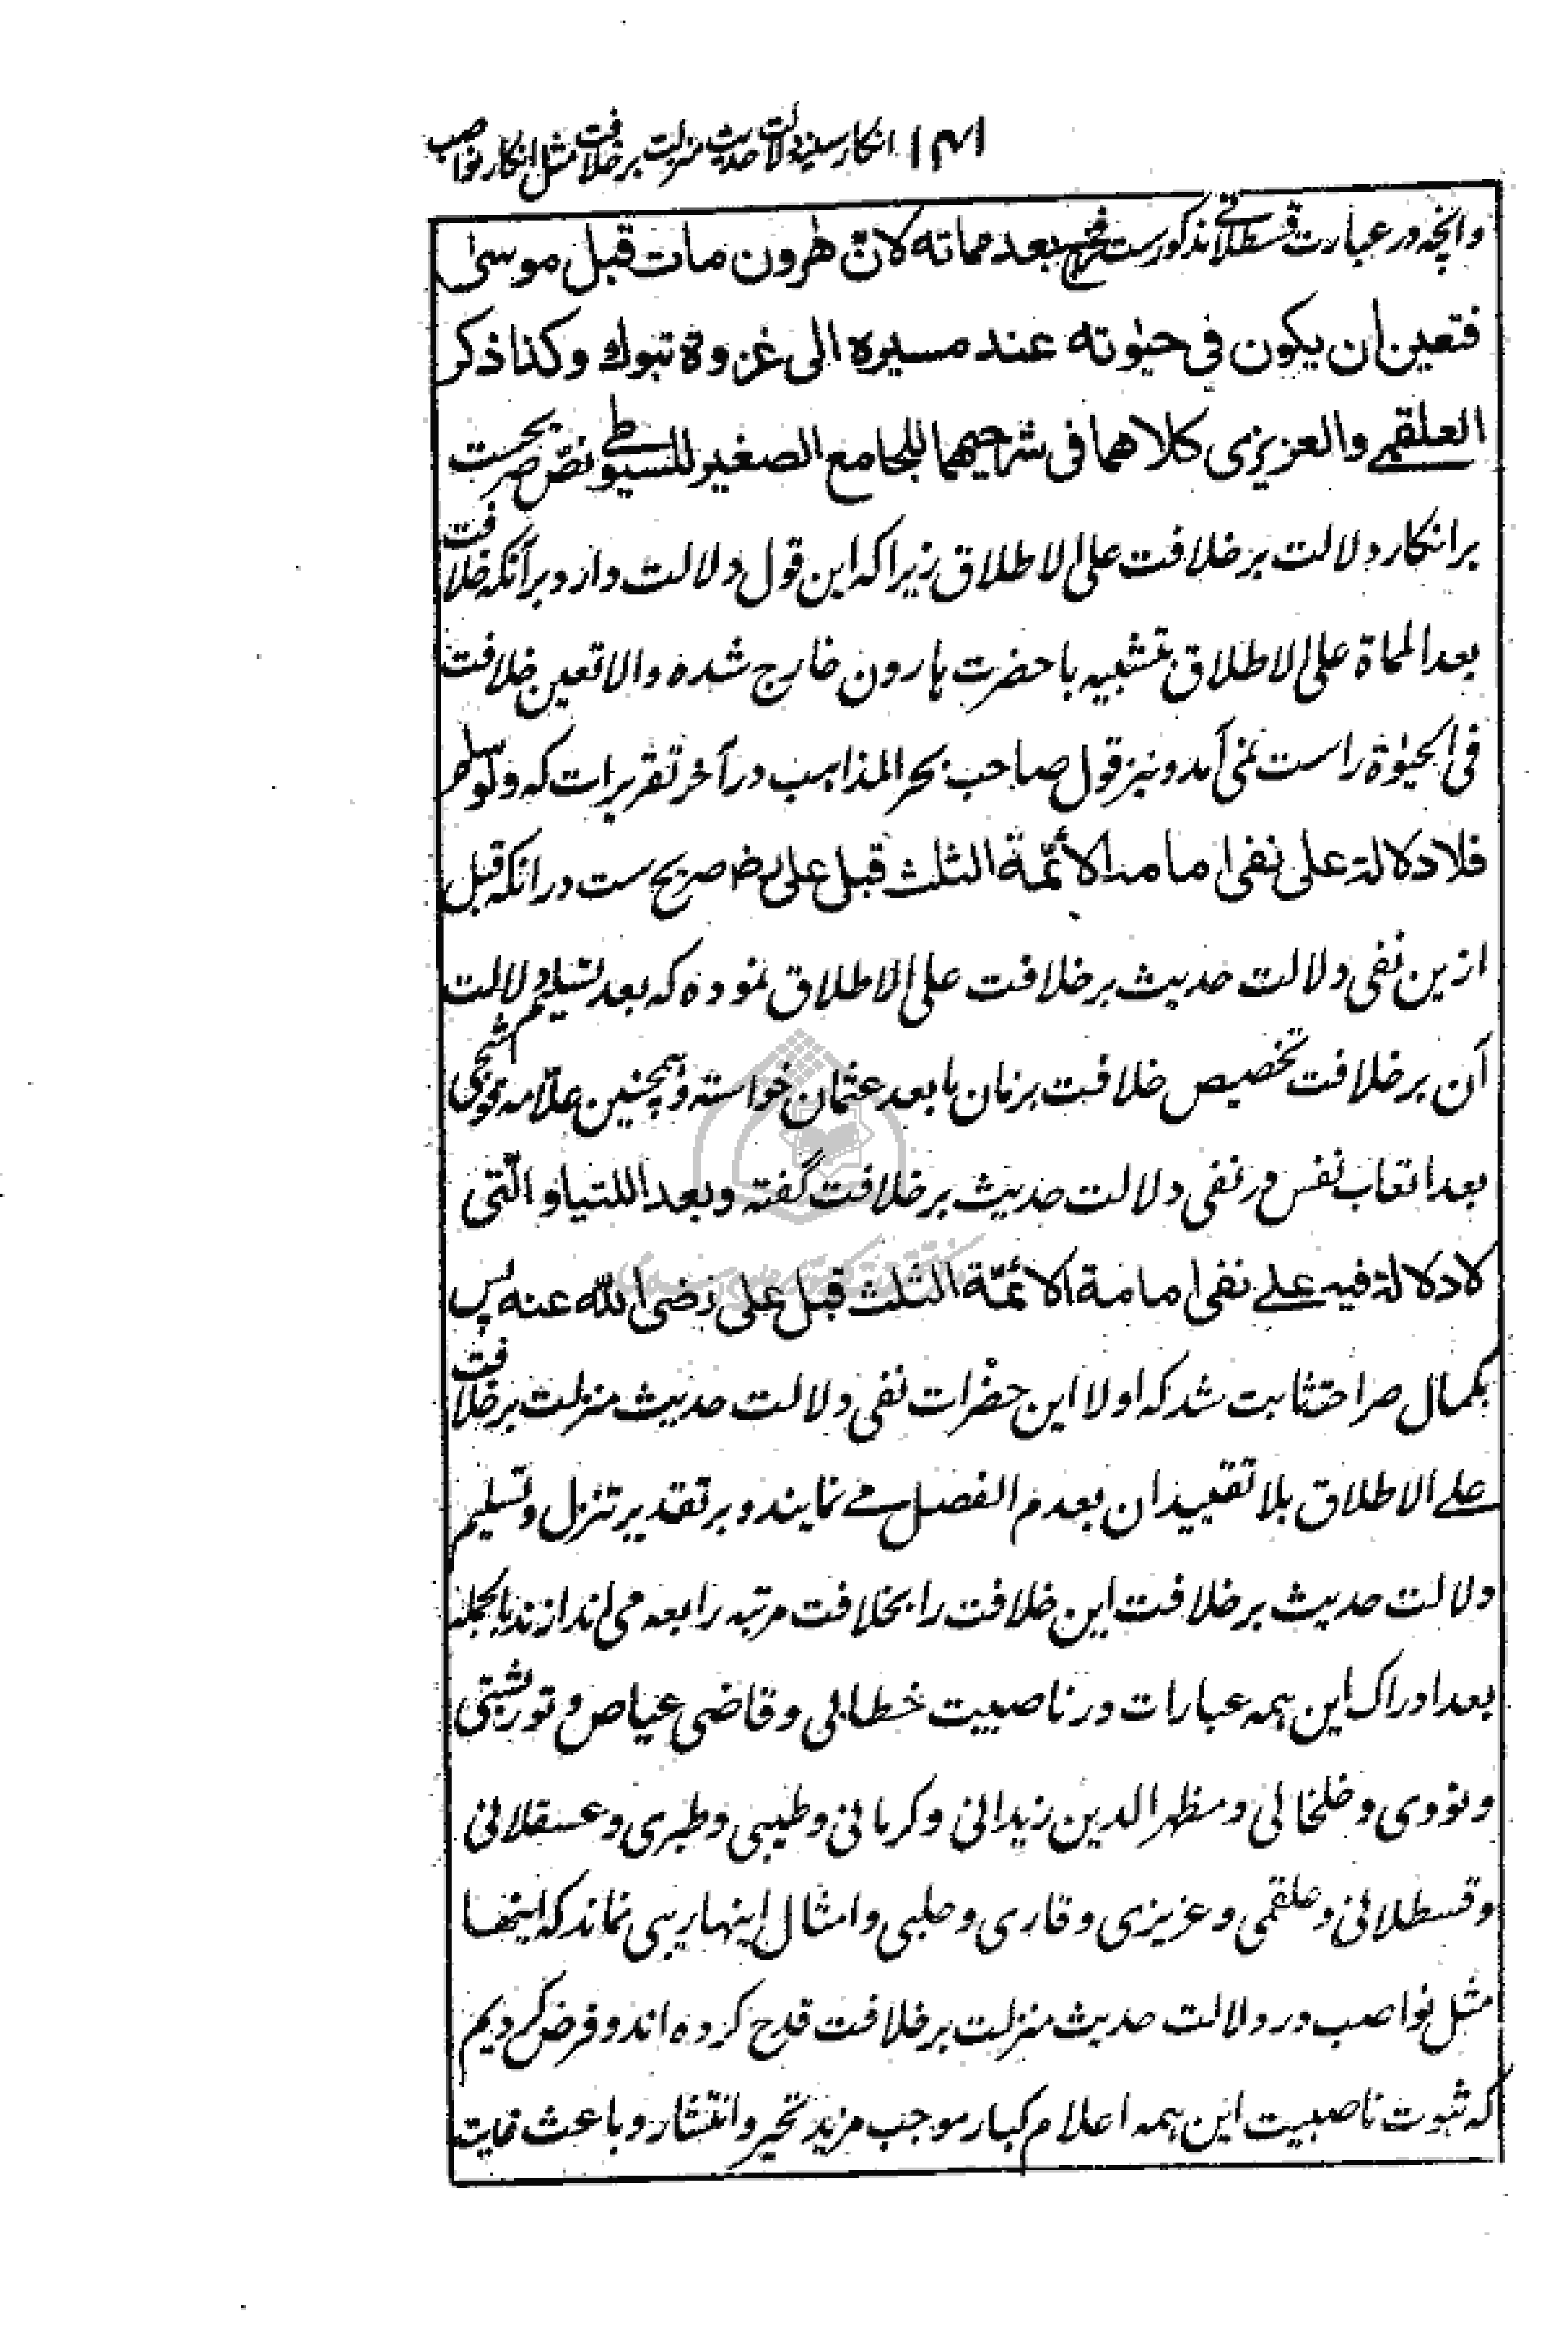 ۱۴۱ انکار سنیه دلالت حدیث منزلت بر خلافت مثل انکار نواصب
وانچه در عبارت قسطلانی مذکورست فخرج بعد مماته لان هرون مات قبل موسی
فتعین ان یکون فی حیٰوته عند مسیره الی غزوة تبوك وکذا ذکر
العلقمے والعزیزی کلاهما فی شرحیهما للجامع الصغیر للسیوطے نصّ صریحست
بر انکار دلالت بر خلافت علی الاطلاق زیرا که این قول دلالت دارد بر آنکه خلافت
بعد المماة علی الاطلاق بتشبیه با حضرت هارون خارج شده والا تعین خلافت
فی الحیٰوة راست نمی آمد و نیز قول صاحب بحر المذاهب در آخر تقریرات که ولو سلم
فلا دلالة علی نفی امامة الأئمّة الثلث قبل علی رض صریح ست در انکه قبل
ازین نفی دلالت حدیث بر خلافت علی الاطلاق نموده که بعد تسلیم دلالت
آن بر خلافت تخصیص خلافت بزمان ما بعد عثمان خواسته و همچنین علّامه قوشجی
بعد اتعاب نفس در نفی دلالت حدیث بر خلافت گفته وبعد اللتیا والّتی
لا دلالة فیه علے نفی امامة الائمّة الثلث قبل علی رضی الله عنه پس
بکمال صراحت ثابت شد که اولا این حضرات نفی دلالت حدیث منزلت بر خلافت
علے الاطلاق بلا تقیید ان بعدم الفصل مے نمایند و بر تقدیر تنزل و تسلیم
دلالت حدیث بر خلافت این خلافت را بخلافت مرتبه رابعه می اندازند بالجمله
بعد ادراک این همه عبارات در ناصبیت خطابی و قاضی عیاض و تورپشتی
و نووی و خلخالی و مظهر الدین زیدانی و کرمانی و طیبی و طبری و عسقلانی
و قسطلانی و علقمی و عزیزی و قاری و حلبی و امثال اینها ریبی نماند که اینها
مثل نواصب در دلالت حدیث منزلت بر خلافت قدح کرده اند و فرض کردیم
که ثبوت ناصبیت این همه اعلام کبار موجب مزید تحیر و انتشار و باعث غایت